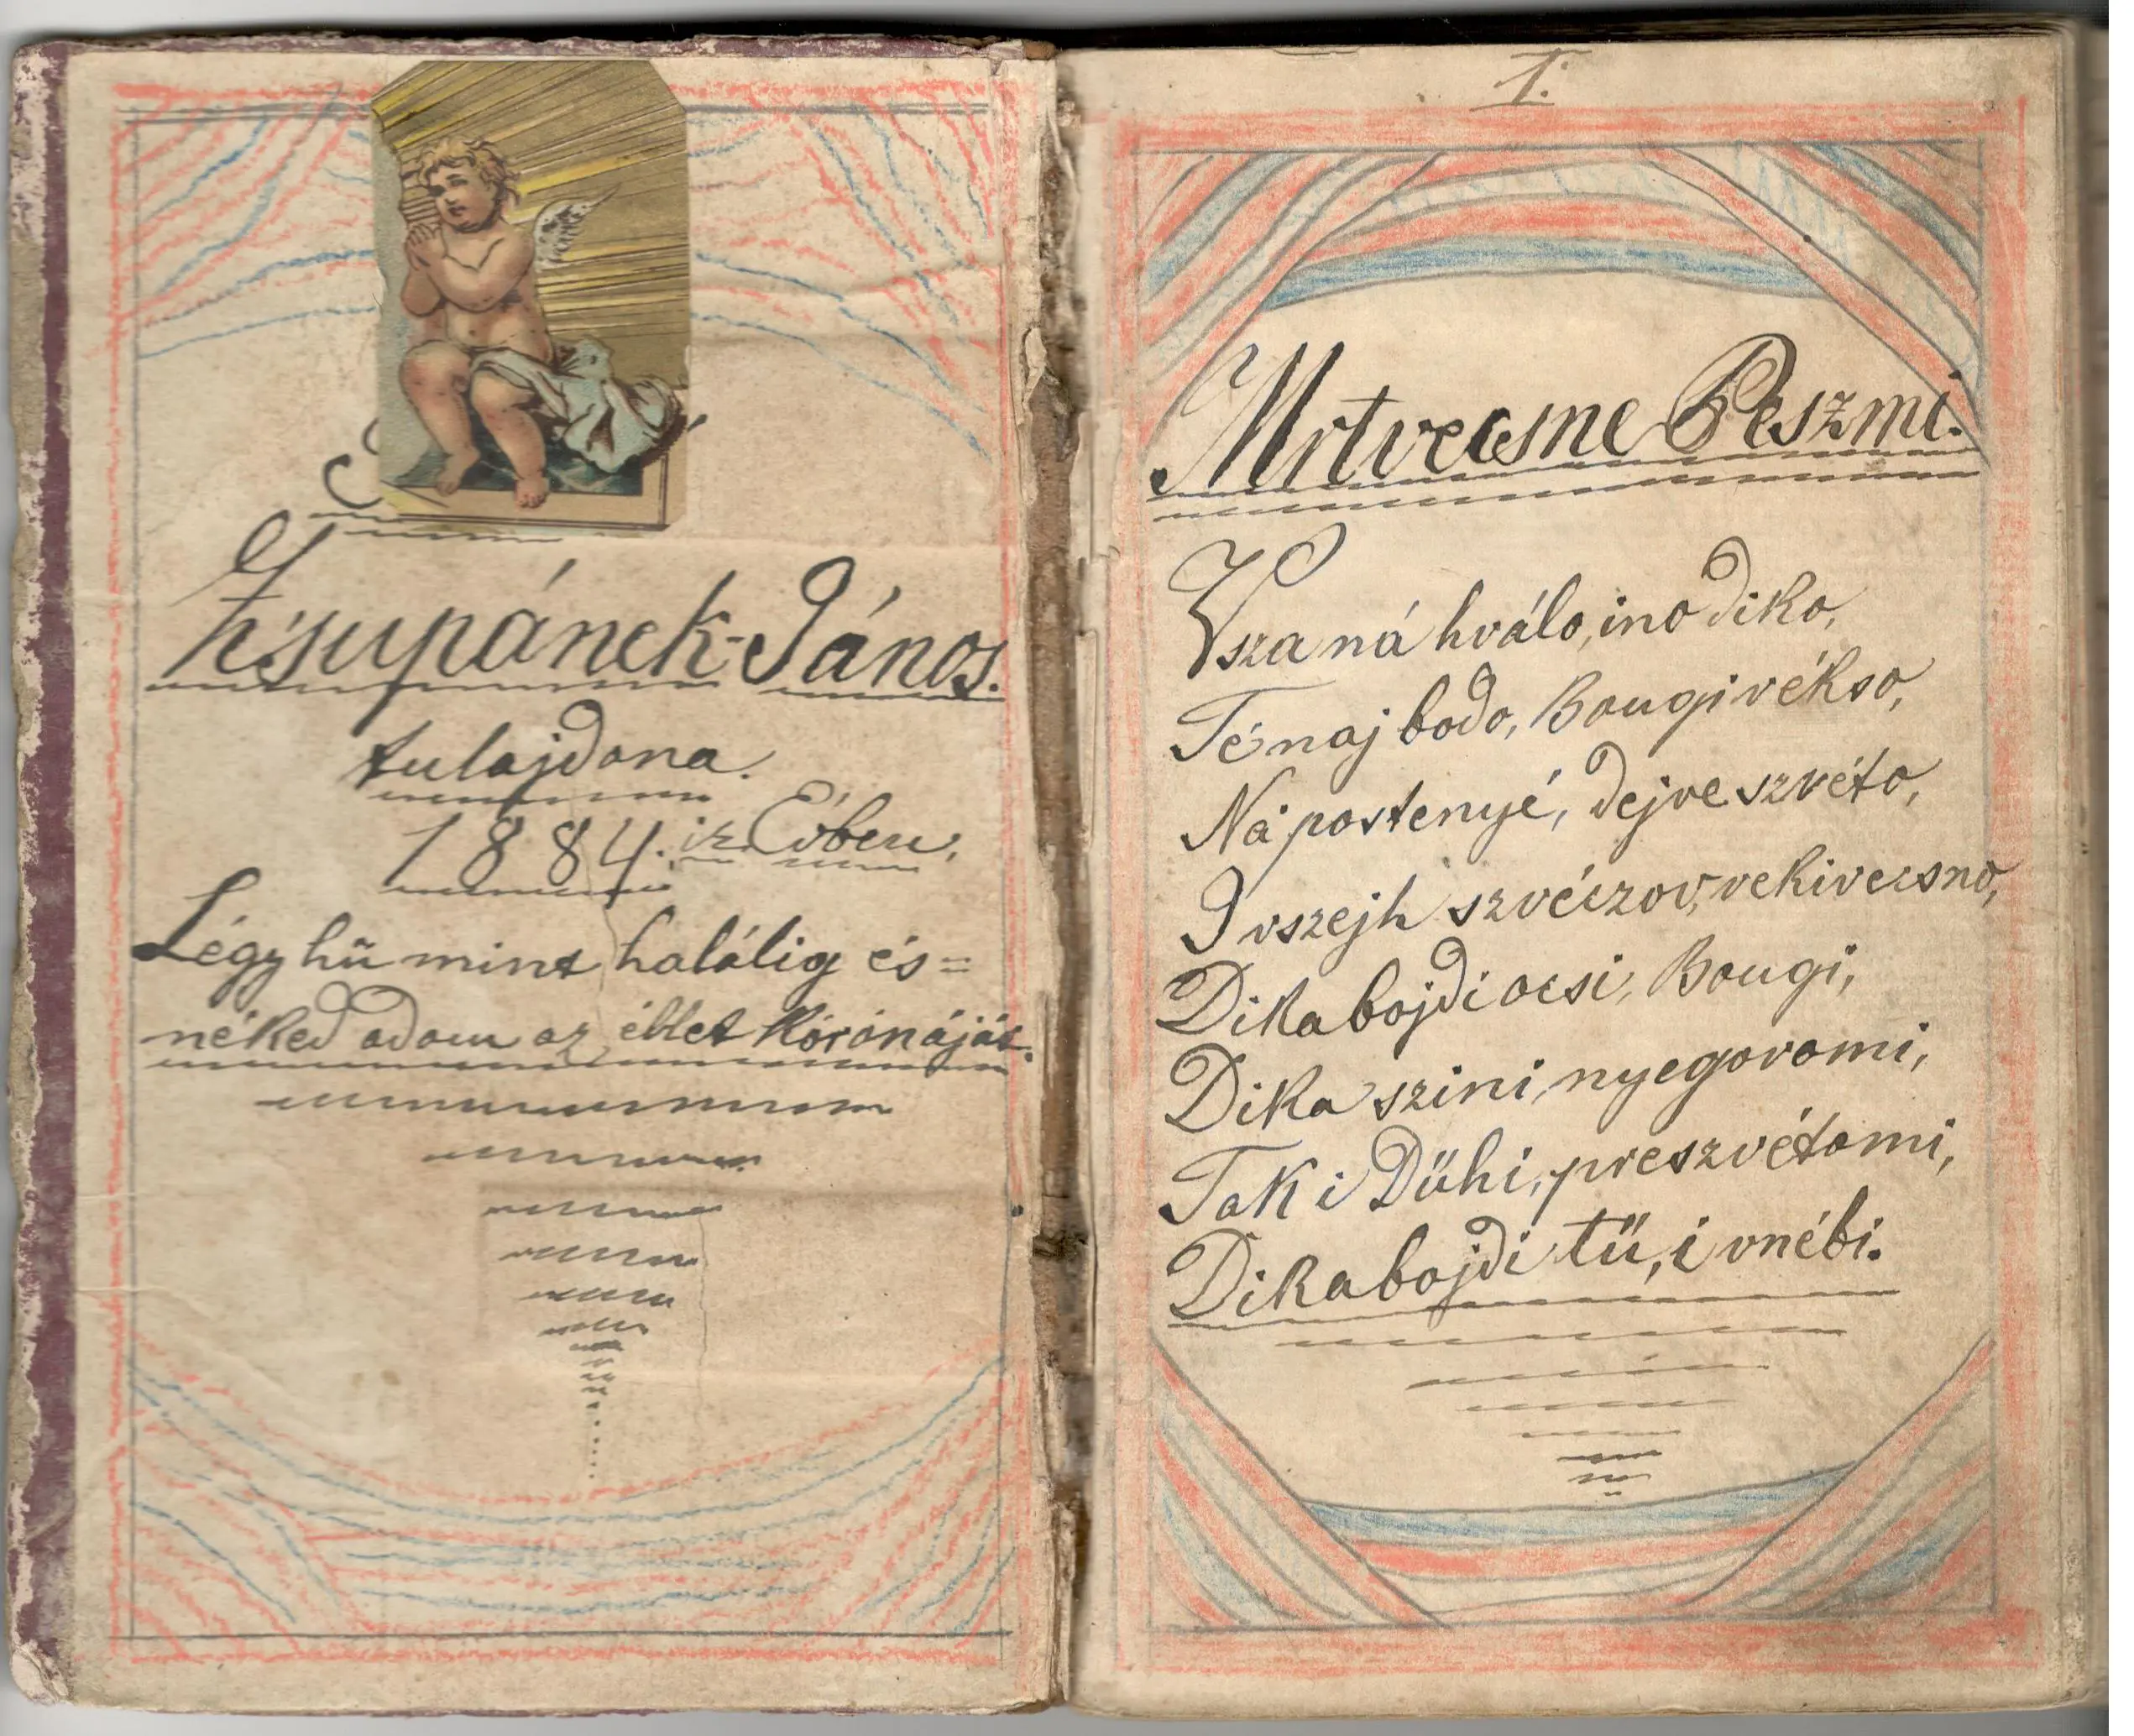 Zsupánek-János.
tulajdona.
1884. ik Évben,
Légy hű mint halálig és=
néked adom az éltet koronáját.
1.
Mrtvecsne Peszmi.
Vsza ná hválo, ino diko,
Té naj bodo, Bougi vékso,
Ná postenyé, dejve szvéto,
I vszejh szvéczov, vekivecsno,
Dika bojdi ocsi, Bougi,
Dika szini, nyegovomi,
Tak i Dühi, preszvétomi,
Dika bojdi tü, i vnébi.